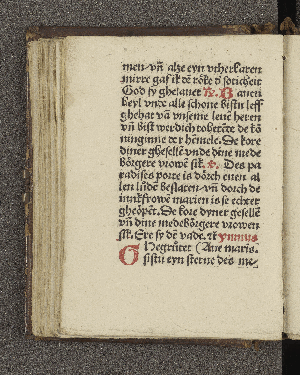 men vñ alze eyn vtherkaren
mirre gaf ik dē röke ď söticheit
God sy ghelauet ꝶ. B aneu
heyl vnde alle schone bistu leff
ghehat vā vnseme leue heren
vñ bist werdich to betrede de kö
ninginne der hēmele. De kore
diner ghesellē vnde dine mede
börgere vrowē sik. v. Des pa
radises porte is dörch euen al
len lüdē beslaten vñ dorch de
iunkfrowē marien is se echter
gheöpēt. De kore dyner gesellē
vñ dine medebörgere vrowen
sik. Ere sy dē vade. rē ymnus
O Hegrůtet (Aue maris.
sistu eyn sterne des me-